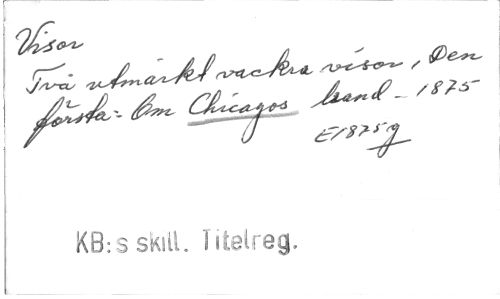 Visor
Två utmärkt vackra visor, Den
första: Om Chicagos brand - 1875
E1875g
KB:s skill. Titelreg.